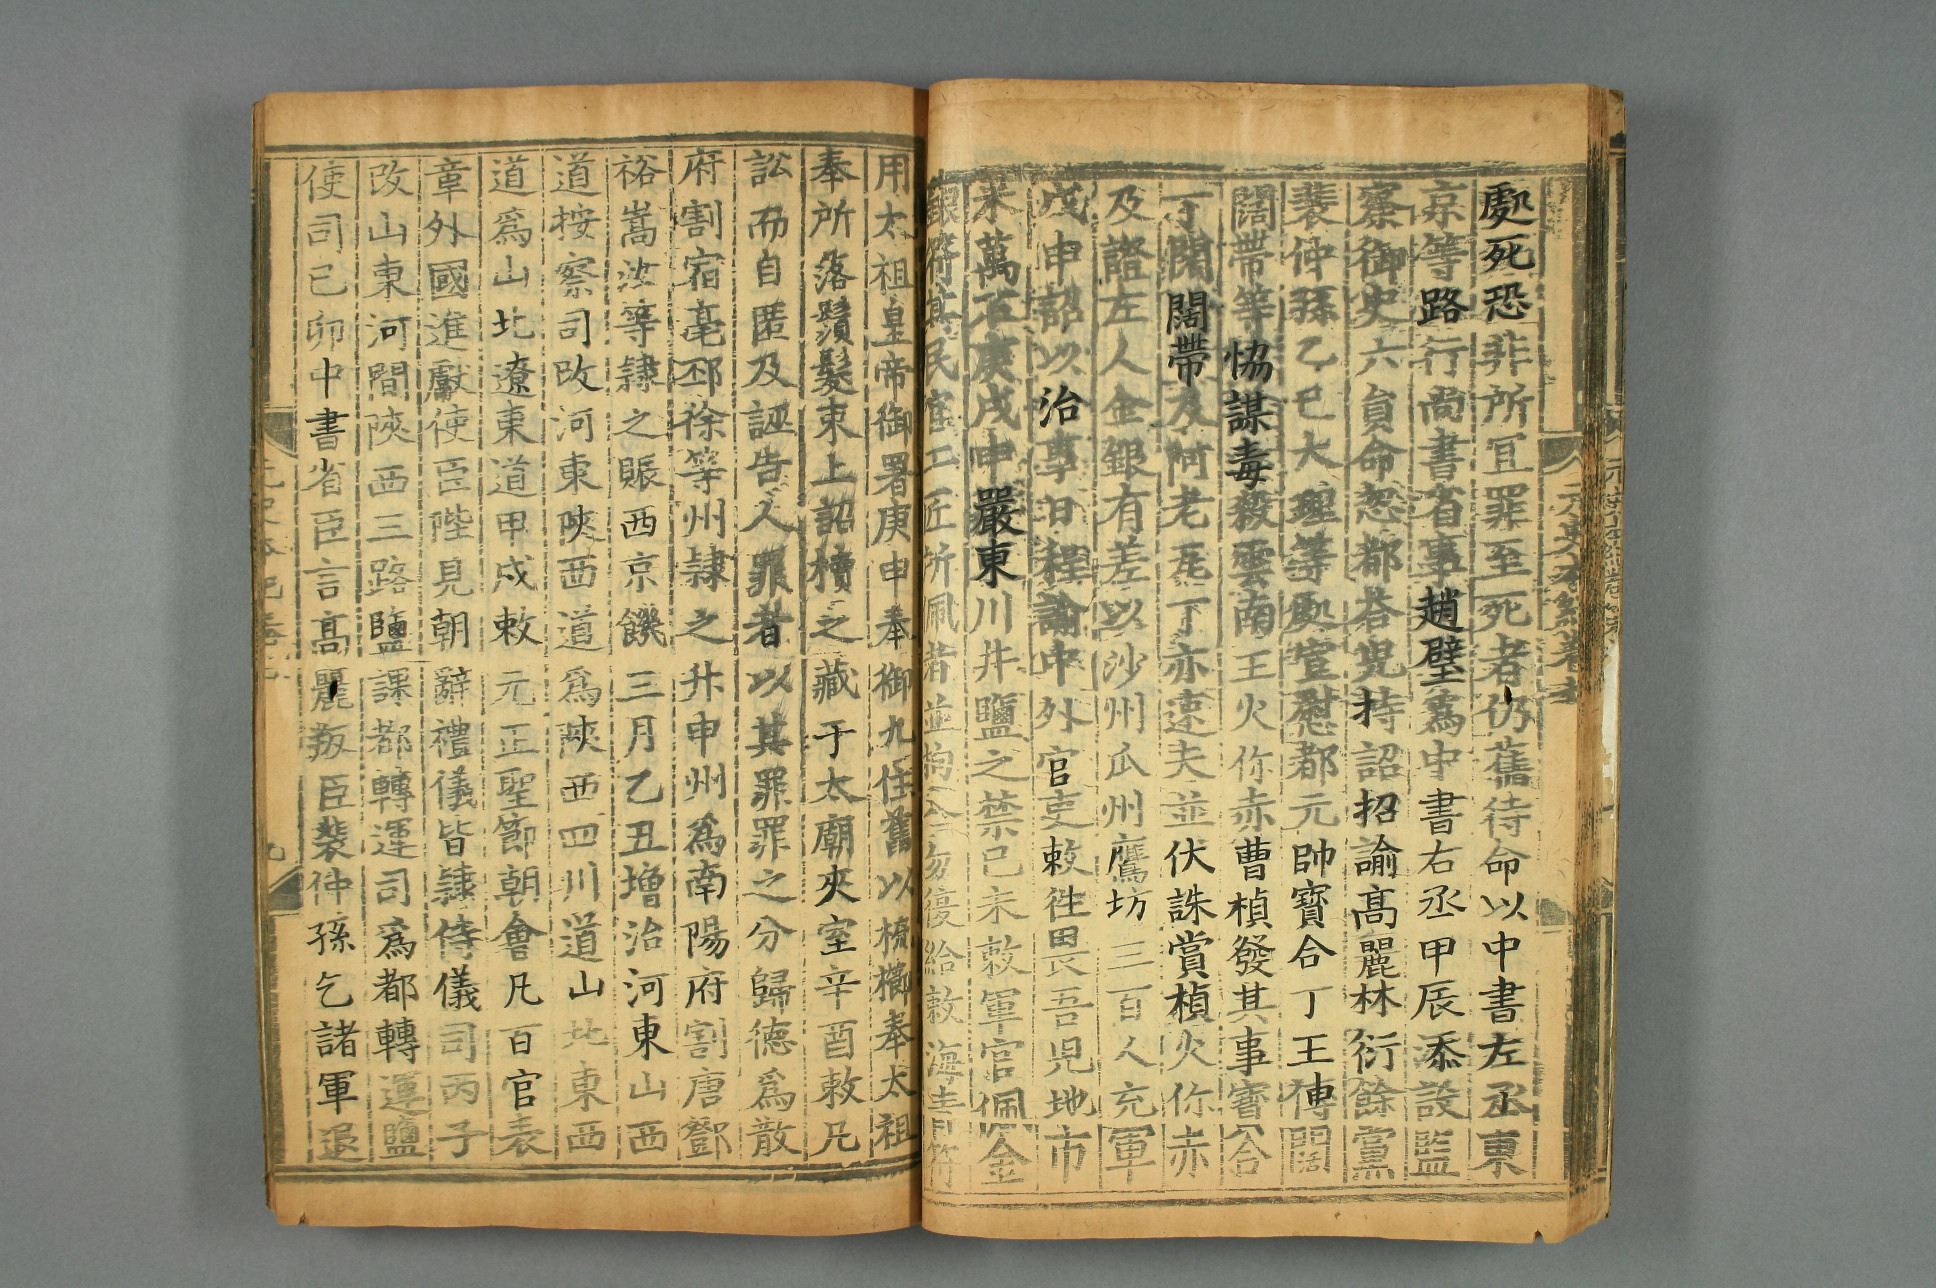 處死恐非所宜罪至死者仍舊待命以中書左丞東
京等路行尚書省事趙璧爲中書右丞甲辰添設監
察御史六員命忽都荅兒持詔招諭高麗林衍餘黨
裴仲孫乙巳大理等處宣慰都元帥寶合丁王傅闊
闊帶等恊謀毒殺雲南王火你赤曹楨發其事寳合
丁闊闊帶及阿老瓦丁亦速夫並伏誅賞楨火你赤
及證左人金銀有差以沙州瓜州鷹坊三百人充軍
戊申詔以治事日程諭中外官吏敕徃畏吾児地市
米萬石庚戌申嚴東川井鹽之禁己未敕軍官佩金
銀符其民官工匠所佩者並拘入勿復給敕海青符
用太祖皇帝御署庚申奉御九住舊以梳櫛奉太祖
奉所落鬚髮束上詔櫝之藏于太廟夾室辛酉敕凡
訟而自匿及誣告人罪者以其罪罪之分歸德爲散
府割宿亳邳徐等州隷之升申州爲南陽府割唐鄧
裕嵩汝等隷之賑西京饑三月乙丑增治河東山西
道按察司改河東陝西道爲陝西四川道山北東西
道爲山北遼東道甲戌敕元正聖節朝會凡百官表
章外國進獻使臣陛見朝辭禮儀皆隷侍儀司丙子
改山東河間陝西三路鹽課都轉運司爲都轉運鹽
使司已卯中書省臣言髙麗叛臣裴仲孫乞諸軍退
元史本紀卷七
九